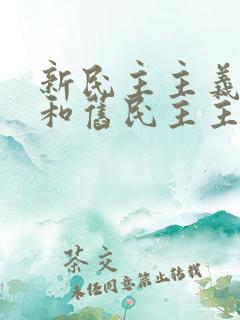 新民主主義
和舊民主主
茶交
未经同意禁止转载